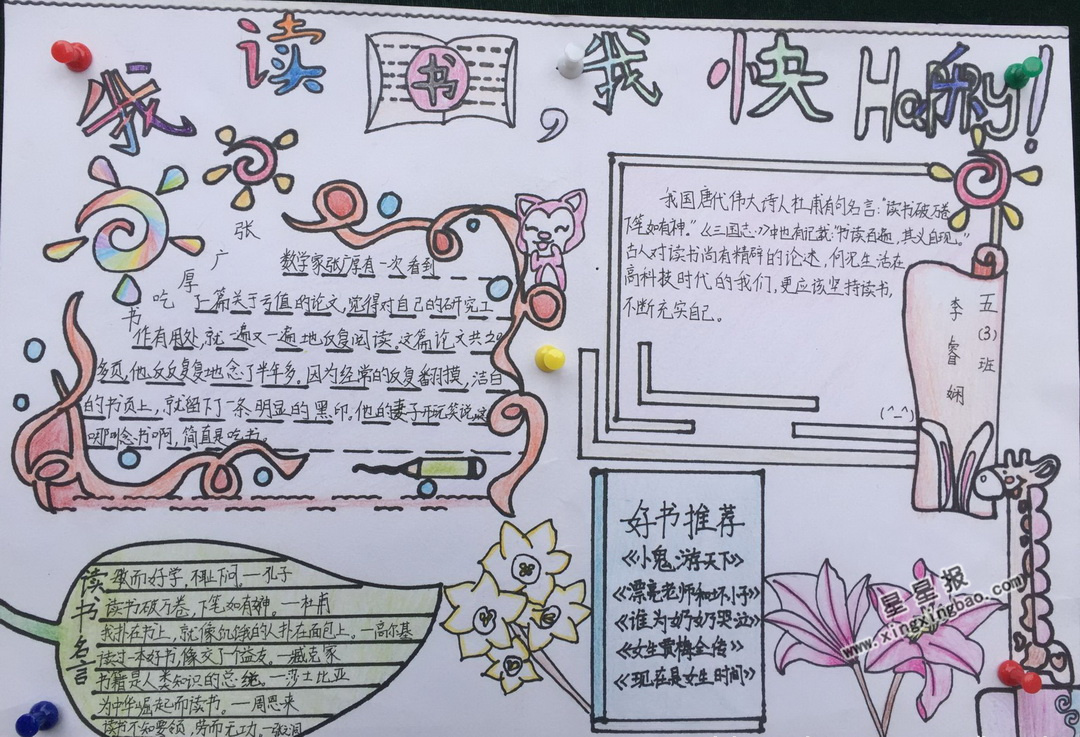 我读书,我快乐
Happy!
张广厚吃书
数学家张广厚有一次看到
了一篇关于亏值的论文,觉得对自己的研究工
作有用处,就一遍又一遍地反复阅读。这篇论文共20
多页,他反反复复地念了半年多。因为经常的反复翻摸,洁白
的书页上,就留下了一条明显的黑印,他的妻子开玩笑说,这
哪叫念书啊,简直是吃书。
我国唐代伟大诗人杜甫有句名言:“读书破万卷
下笔如有神。”《三国志》中也有记载:“书读百遍,其义自现。”
古人对读书尚有精辟的论述,何况生活在
高科技时代的我们,更应该坚持读书,
不断充实自己。
(^_^)
五(3)班
李睿娴
读书名言
敏而好学,不耻下问。—孔子
读书破万卷,下笔如有神。—杜甫
我扑在书上,就像饥饿的人扑在面包上。—高尔基
读过一本好书,像交了个益友。—臧克家
书籍是人类知识的总统。—莎士比亚
为中华崛起而读书。—周恩来
读书不知要领,劳而无功。
好书推荐
《小鬼游天下》
《漂亮老师和坏小子》
《谁为奶奶哭泣》
《女生贾梅全传》
《现在是女生时间》
星星报
www.xingxingbao.com